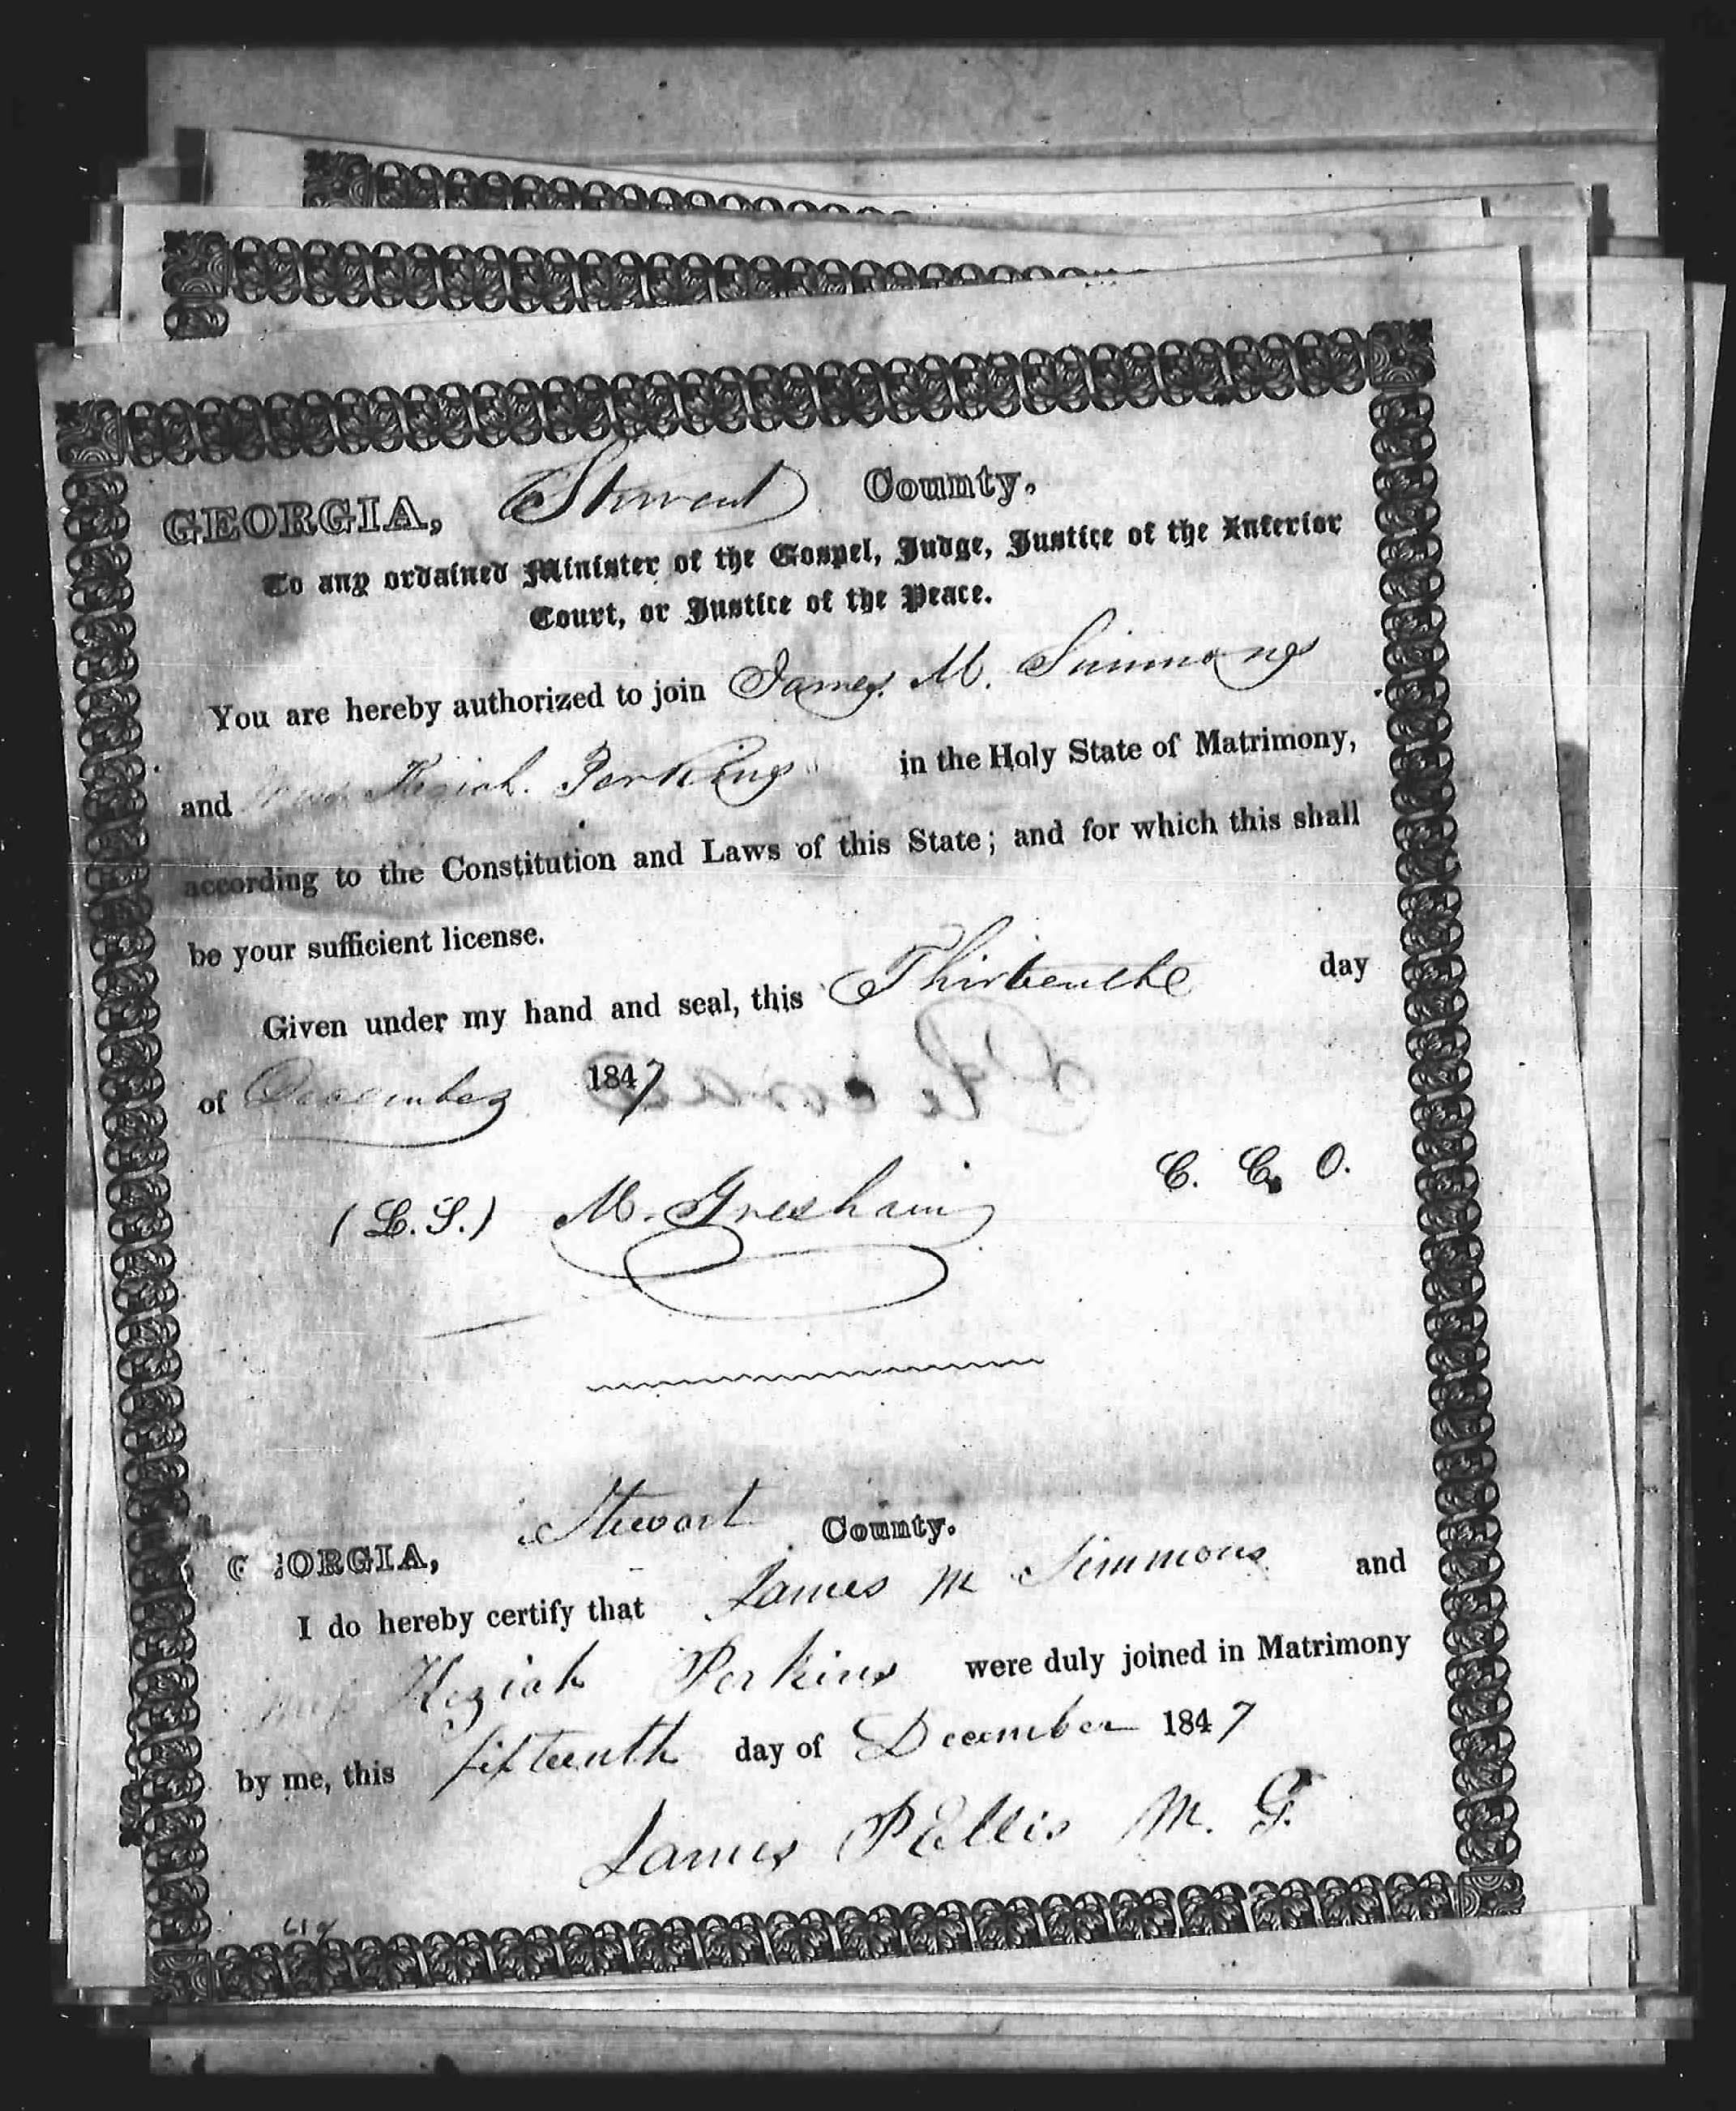 GEORGIA, Stewart County.
To any ordained Minister of the Gospel, Judge, Justice of the Inferior
Court, or Justice of the Peace.
You are hereby authorized to join James M. Simmons
and Miss Keziah Perkins in the Holy State of Matrimony,
according to the Constitution and Laws of this State; and for which this shall
be your sufficient license.
Given under my hand and seal, this Thirteenth day
of December 1847
(L.S.) M. Gresham C. C. O.
Stewart County.
GEORGIA,
I do hereby certify that James M Simmons and
Miss Keziah Perkins were duly joined in Matrimony
by me, this fifteenth day of December 1847
James P Ellis M. G.